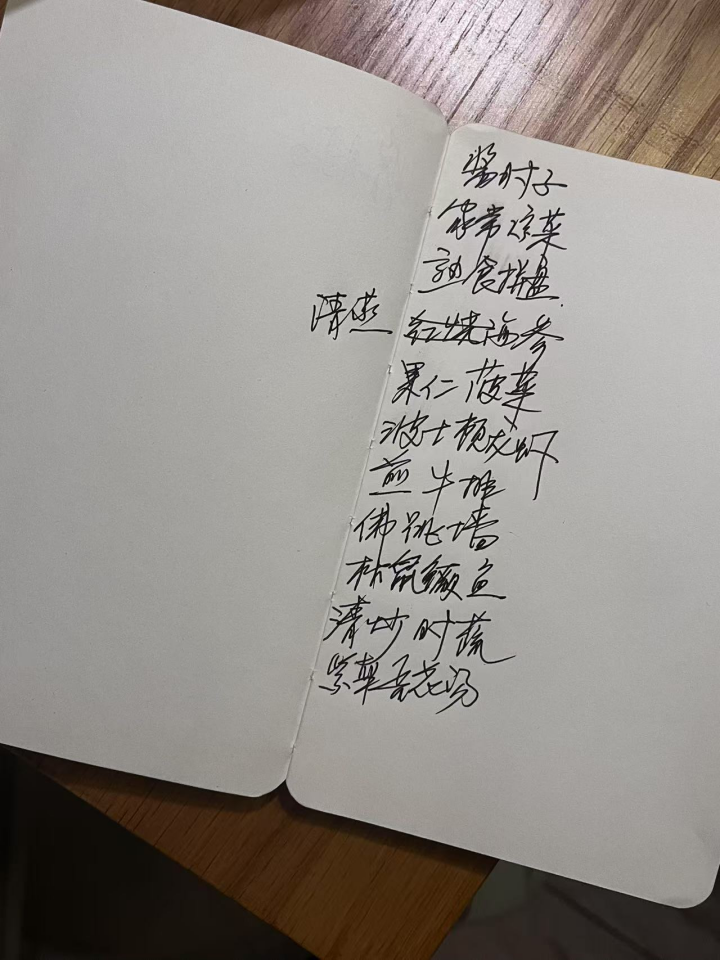 酱肘子
家常凉菜
熟食拼盘
清蒸 红烧海参
果仁菠菜
波士顿龙虾
煎牛排
佛跳墙
松鼠鳜鱼
清炒时蔬
紫菜蛋花汤